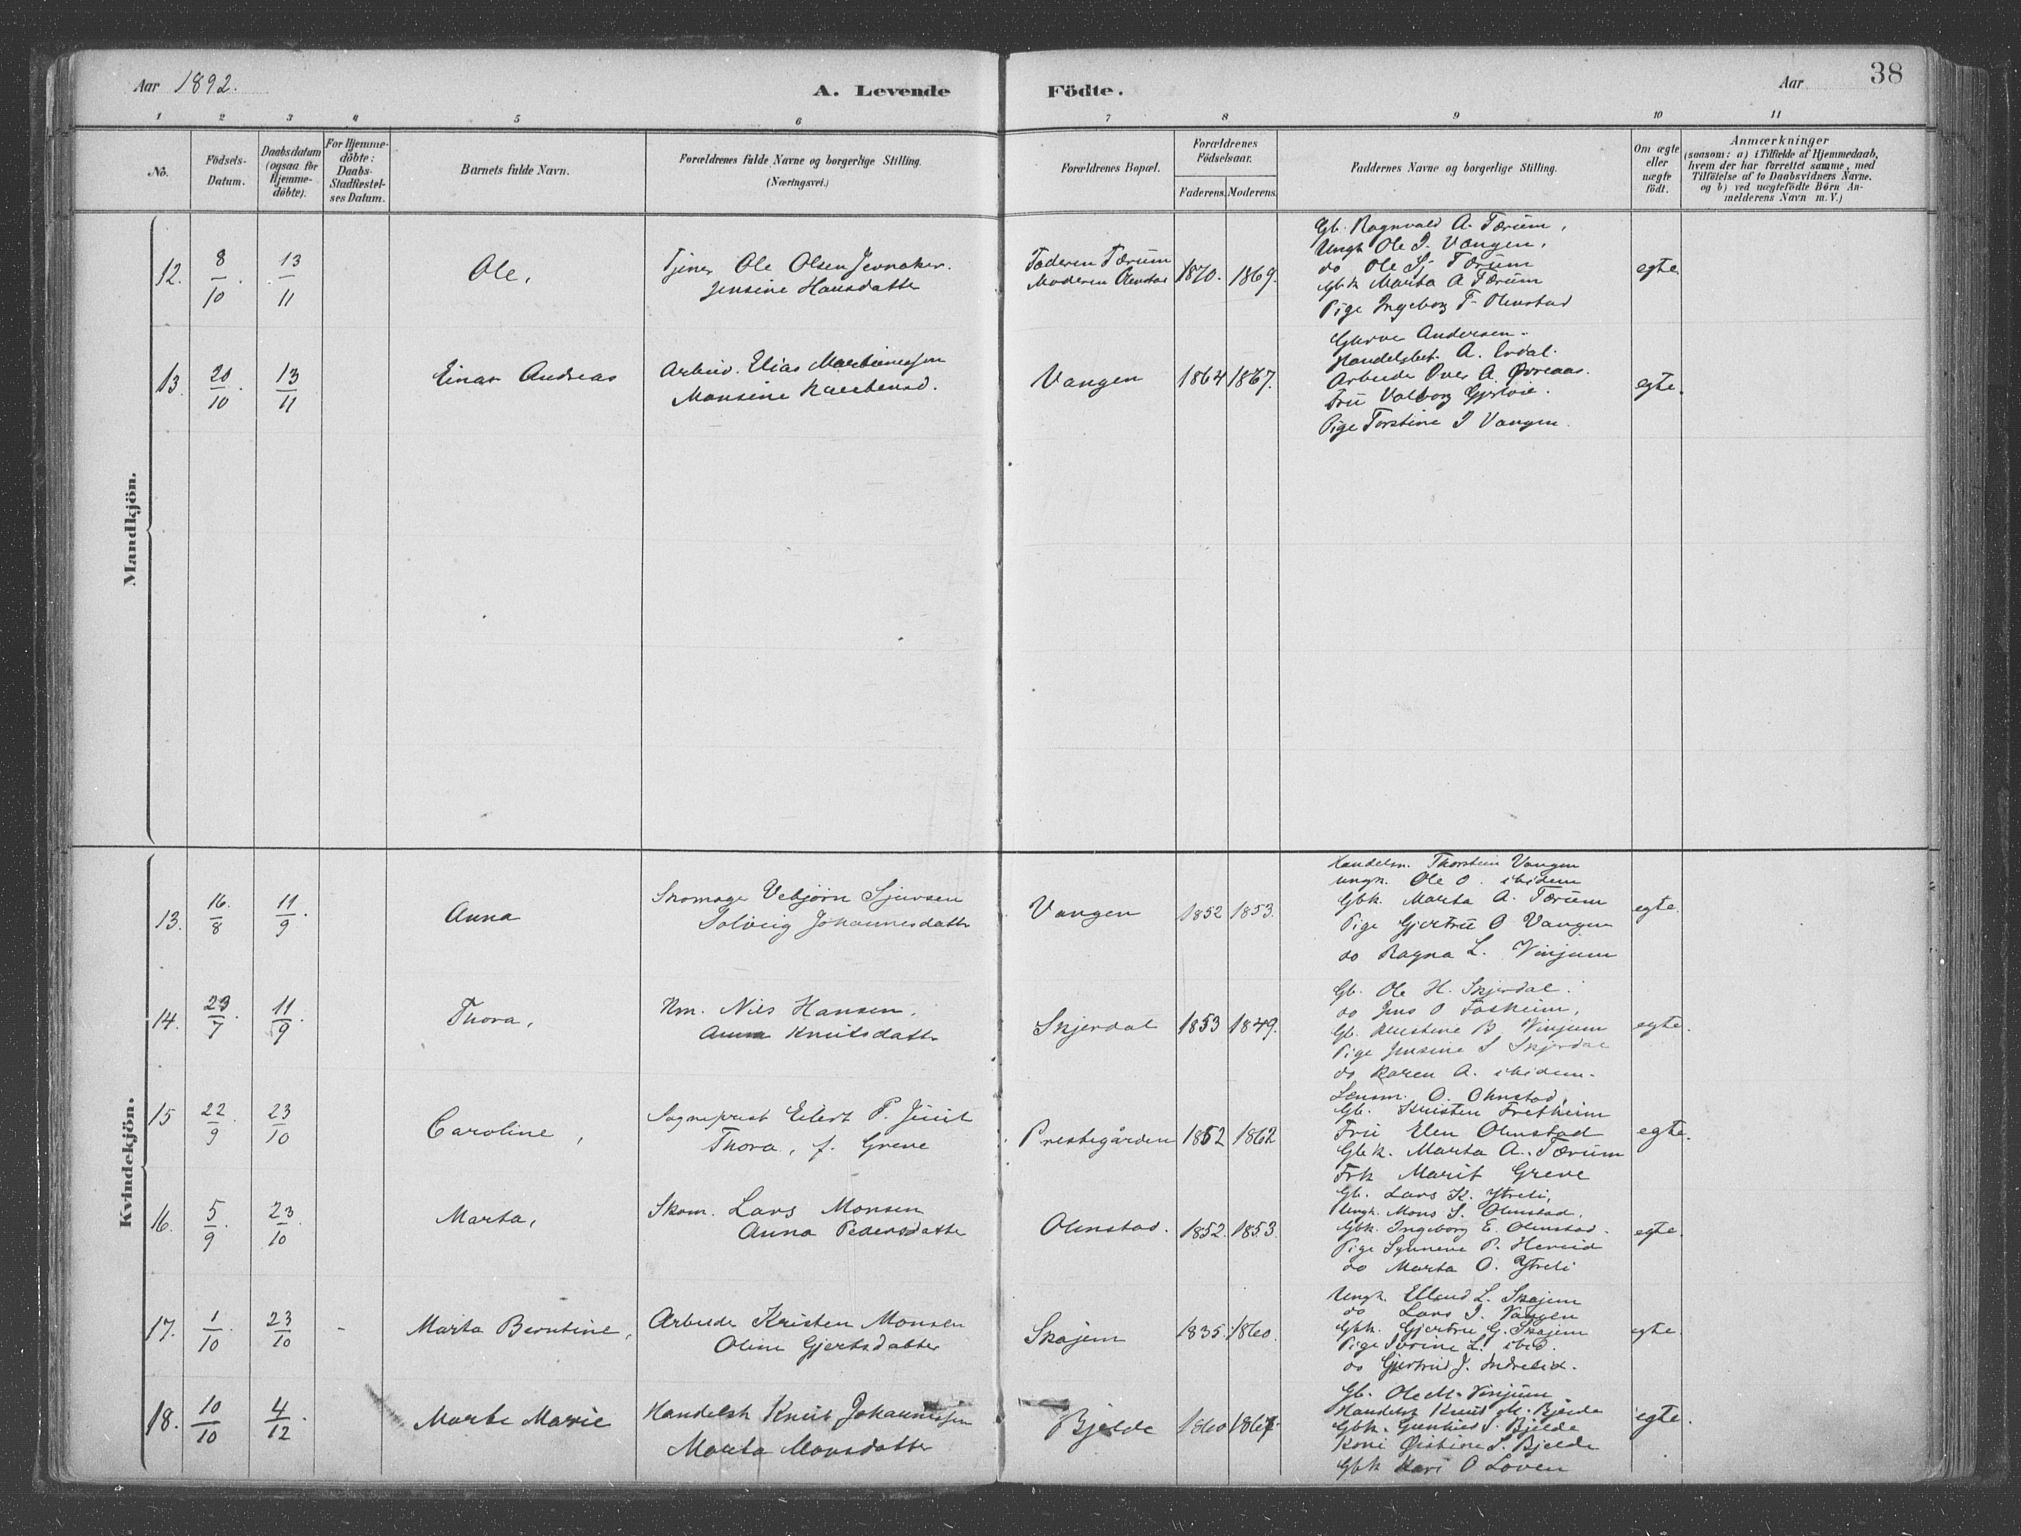 Aar 1892.
A. Levende
Födte.
Aar
38
1 2 3 4 5 6 7 8 9 10 11
No.
Födsels-
Datum.
Daabsdatum
(ogsaa for
Hjemme-
döbte).
For Hjemme-
döbte:
Daabs-
Stadfæstel-
ses Datum.
Barnets fulde Navn.
Forældrenes fulde Navne og borgerlige Stilling.
(Næringsvei.)
Forældrenes Bopæl.
Forældrenes
Födselsaar.
Faderens. Moderens.
Faddernes Navne og borgerlige Stilling.
Om ægte
eller
uægte
födt.
Anmærkninger
(saasom: a) i Tilfælde af Hjemmedaab,
hvem der har forrettet samme, med
Tilföielse af to Daabsvidners Navne,
og b) ved uægtefödte Börn An-
melderens Navn m. V.)
Mandkjön.
12. 8/10. 13/11 Ole,
Tjener Ole Olsen Jevnaker.
Jensine Hansdatter
Faderen Tærum
Moderen Olmstad
1870. 1869.
Gb. Ragnvald A. Tærum,
Ungk. Ole J. Vangen,
do Ole J. Tærum
Gbk Marta A Tærum
Pige Ingeborg T. Olmstad
egte.
13. 20/10. 13/11 Einar Andreas
Arbeid. Elias
Monsine
Vangen 1864 1867.
Andersen.
Handelsbet. A. Erdal.
Arbeide Over A. Øvreaas.
Frü Valborg
Pige Torstine J Vangen.
egte.
Kvindekjön.
13. 16./8 11/9. Anna
Skomager Vebjörn Sjursen
Solveig Johannesdatter
Vangen 1852 1853.
Handelsm. Thorstein Vangen
Ungk. Ole O. ibidem
Gbk. Marta A. Tærum
Pige Gjertrü O Vangen
do Ragna L. Vinjum
egte.
14. 23/7. 11/9. Thora,
Nm. Nils Hansen,
Anna Knutsdatter
Skjerdal 1853 1849.
Gb. Ole H. Skjerdal.
do Jens O Fosheim,
Gb. Kristine B. Vinjum
Pige Jensine S Skjerdal
do Karen A. ibidem.
egte.
15 22/9. 23/10 Caroline,
Sogneprest Eilert P. Juul
Thora, f. Greve
Prestegården 1852 1862
Lensm. O. Ohnstad,
Gb. Kristen Fretheim
Frü Elen Ohnstad
Gbk. Marta A. Tærum
Frk Marit Greve
egte.
16. 5/9. 23/10. Marta,
Skom. Lars Monsen
Anna Pedersdatter
Olmstad. 1852. 1853.
Gb. Lars K. Ytreli,
Ungk. Mons S. Olmstad,
Gbk. Ingeborg E. Olmstad.
Pige Synneve P. Hereid
do Marta O. Ytreli
egte.
17. 1/10. 23/10 - Marta Berntine,
Arbeide Kristen Monsen
Oline Gjertsdatter
Skajem 1835 1860.
Ungk. Elland L. Skajem
do Lars J. Vangen
Gbk. Gjertrü G. Skajem
Pige Sörine L. ibid.
do Gjertrud J. Indrelid.
egte.
18. 10/10 4/12. Marte Marie
Handelsk Knut Johannessen
Marta Monsdatter
Bjelde 1860 1867.
Gb. Ole M. Vinjum
Handelsk Knut M. Bjelde
Gbk. Gunhild S. Bjelde
Kone Øistine S. Bjelde
Gbk Kari O Loven
egte.